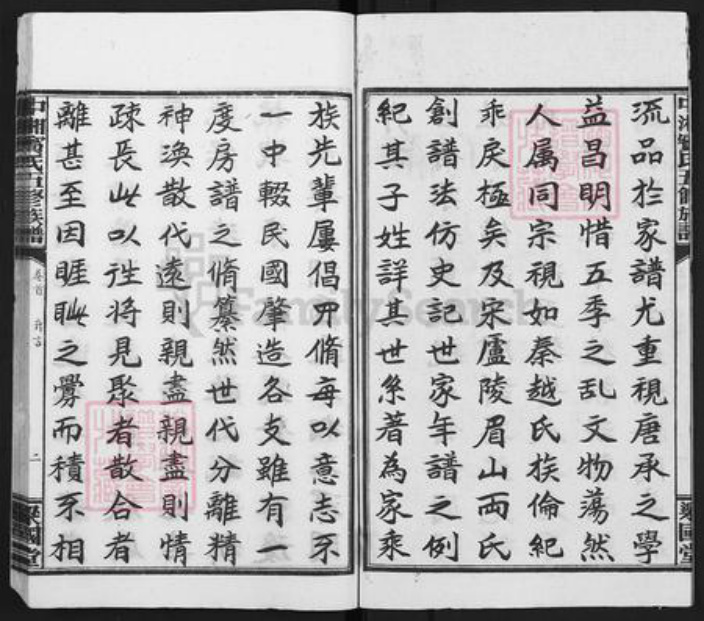 流品於家譜尤重視唐承之學
益昌明惜五季之乱文物蕩然
人属同宗視如秦越氏族倫紀
乖戾極矣及宋廬陵眉山両氏
創譜法仿史記世家年譜之例
紀其子姓詳其世系著為家乘
中湘竇氏五修族譜
卷首
二
梁國堂
族先輩屢倡开脩每以意志不
一中輟民國肇造各支雖有一
度房譜之脩纂然世代分離精
神渙散代遠則親盡親盡則情
疎長此以往將見聚者散合者
離甚至因睚眦之釁而積不相
FamilySearch